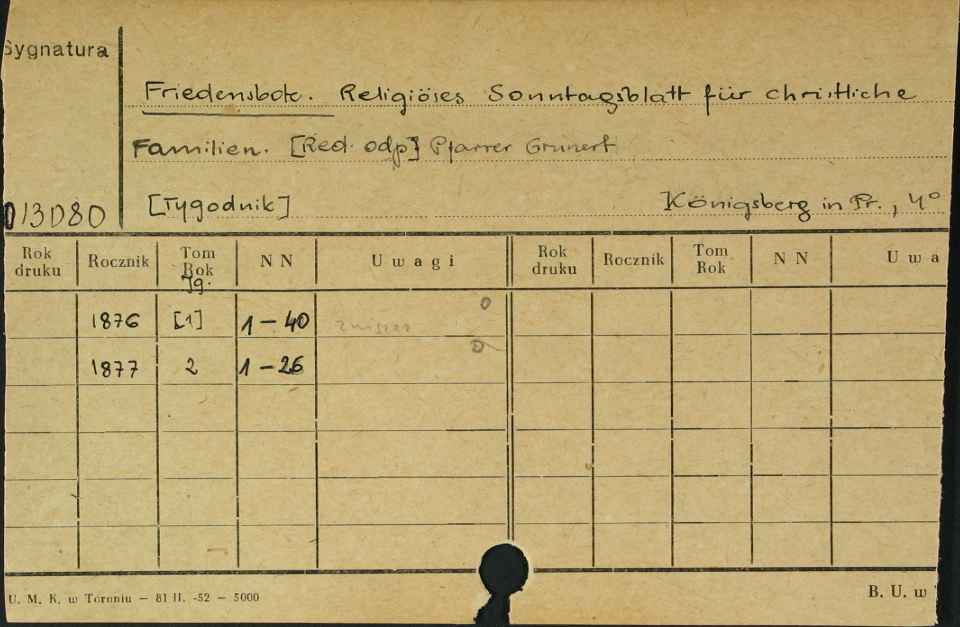 Sygnatura
Friedensbote. Religiöses Sonntagsblatt für christliche
Familien. [Red. odp] Pfarrer Grunert
013080
[Tygodnik] Königsberg in Pr., 4°
Rok druku Rocznik Tom Rok NN Uwagi Rok druku Rocznik Tom Rok NN Uwa
Jg.
1876 [1] 1-40 0
1877 2 1-26 0
U. M. K. w Toruniu — 81 II. -52 — 5000 B. U. w